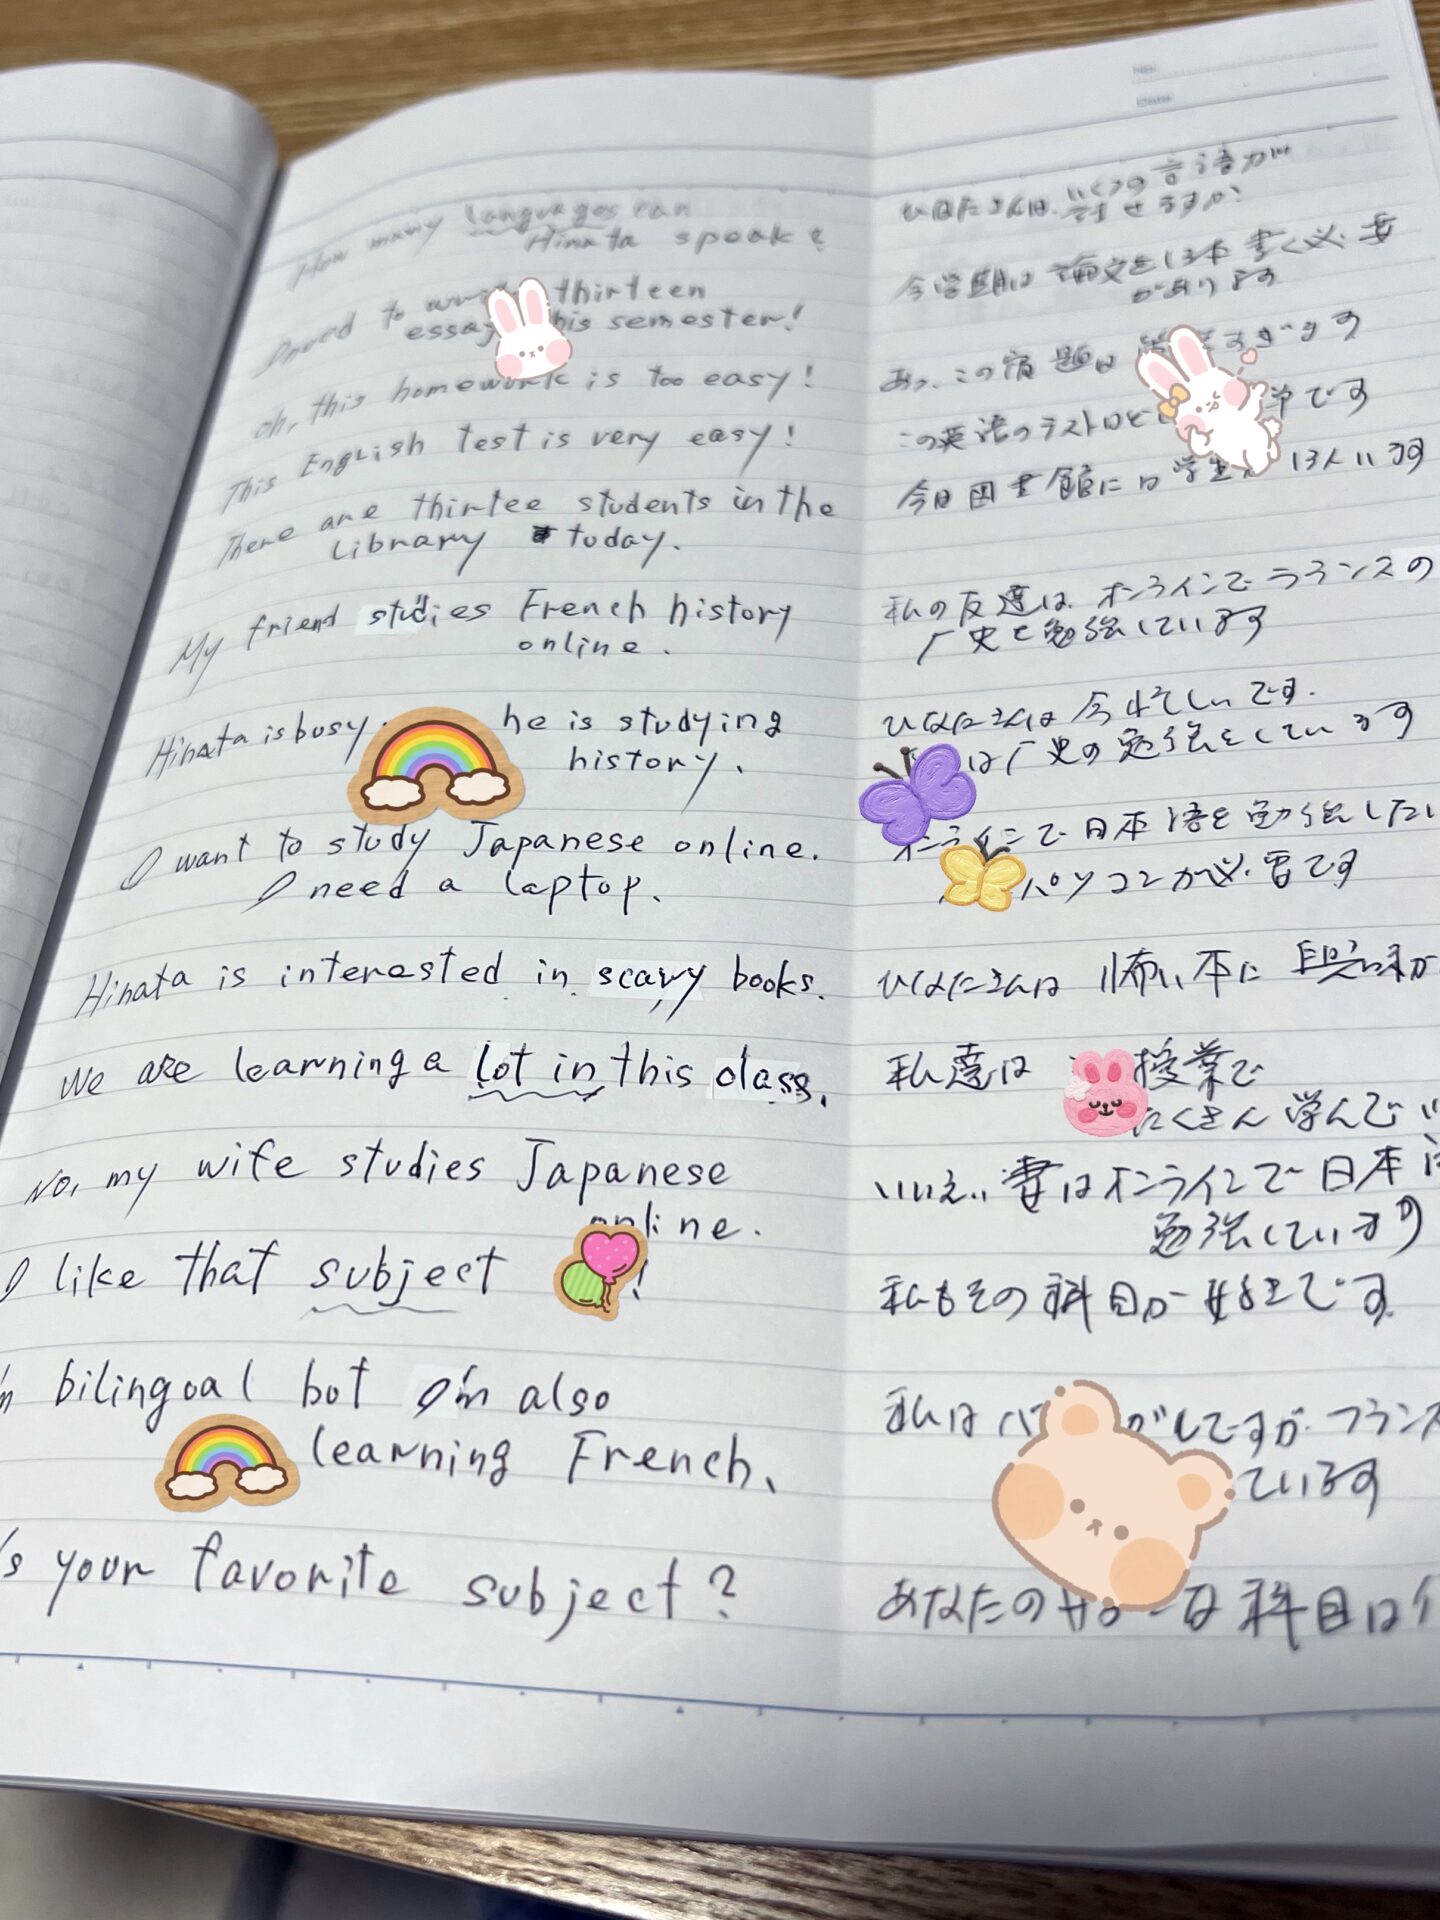 How many languages can
Hinata speak?
ひなたさんは、いくつの言語が
話せますか?
I need to write thirteen
essay this semester!
今学期は論文を13本書く必要
があります
oh, this homework is too easy!
あっ、この宿題は すぎます
This English test is very easy!
この英語のテストは です
There are thirtee students in the
library today.
今日図書館には学生が13人います
My friend studies French history
online.
私の友達は、オンラインでフランスの
史を勉強しています
Hinata is busy. he is studying
history.
ひなたさんは今忙しいです.
は 史の勉強をしています
I want to study Japanese online.
I need a laptop.
オンラインで日本語を勉強したい
パソコンが必要です
Hinata is interested in scary books.
ひなたさんは怖い本に興味が
We are learning a lot in this class.
私達は 授業で
たくさん学んでい
No, my wife studies Japanese
online.
いいえ、妻はオンラインで日本
勉強しています
I like that subject !
私もその科目が好きです.
bilingual but I'm also
learning French.
私は ですが フランス
ています
's your favorite subject?
あなたの な科目は